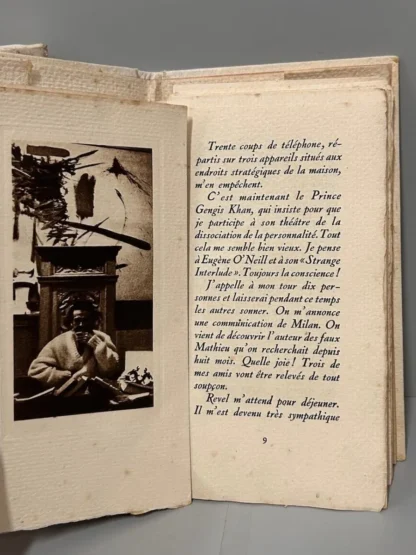 Trente coups de téléphone, ré-
partis sur trois appareils situés aux
endroits stratégiques de la maison,
m'en empêchent.
C'est maintenant le Prince
Gengis Khan, qui insiste pour que
je participe à son théâtre de la
dissociation de la personnalité. Tout
cela me semble bien vieux. Je pense
à Eugène O'Neill et à son «Strange
Interlude». Toujours la conscience!
J'appelle à mon tour dix per-
sonnes et laisserai pendant ce temps
les autres sonner. On m'annonce
une communication de Milan. On
vient de découvrir l'auteur des faux
Mathieu qu'on recherchait depuis
huit mois. Quelle joie! Trois de
mes amis vont être relevés de tout
soupçon.
Revel m'attend pour déjeuner.
Il m'est devenu très sympathique
9